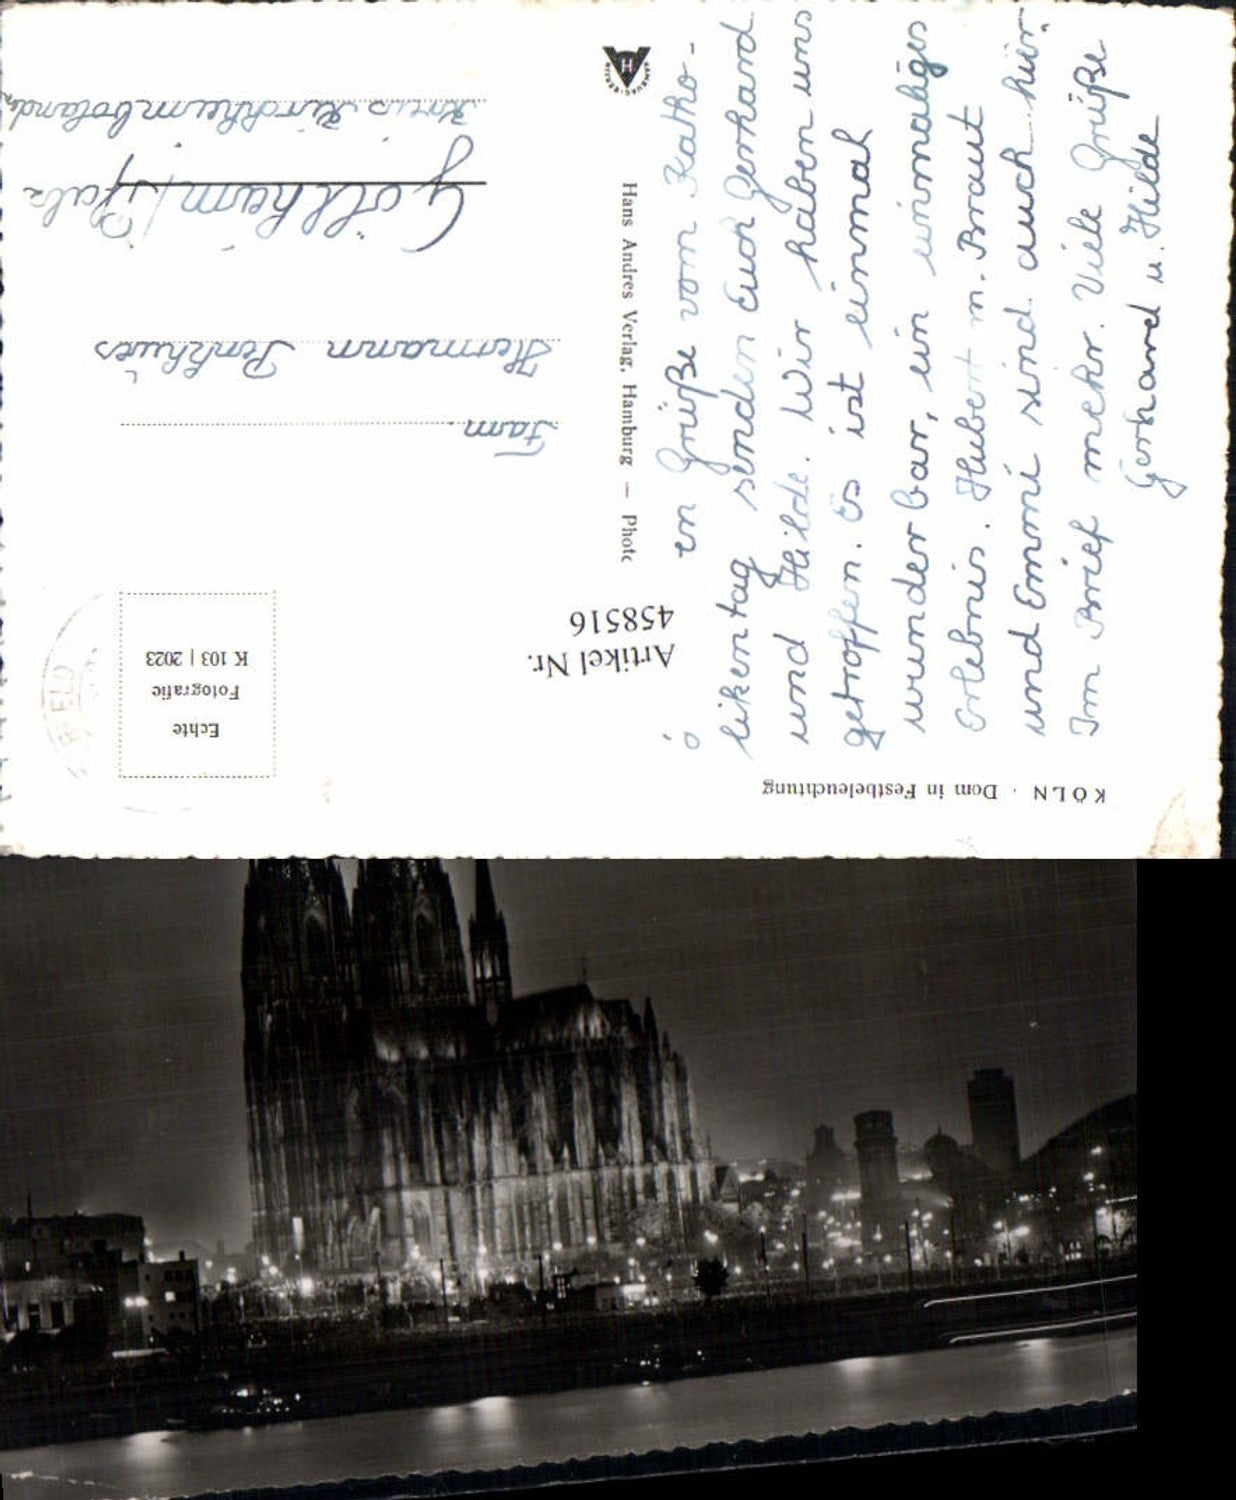 KÖLN · Dom in Festbeleuchtung
en Grüße vom Katho-
likentag senden Euch Gerhard
und Hilde. Wir haben uns
getroffen. Es ist einmal
wunderbar, ein einmaliges
Erlebnis. Hubert m. Braut
und Emmi sind auch hier.
Im Brief mehr. Viele Grüße
Gerhard u. Hilde
Artikel Nr.
458516
Hans Andres Verlag, Hamburg — Photo
H
Echte
Fotografie
K 103 | 2023
Fam
Hermann
Göllheim / Pfalz
Kreis Kirchheimboland